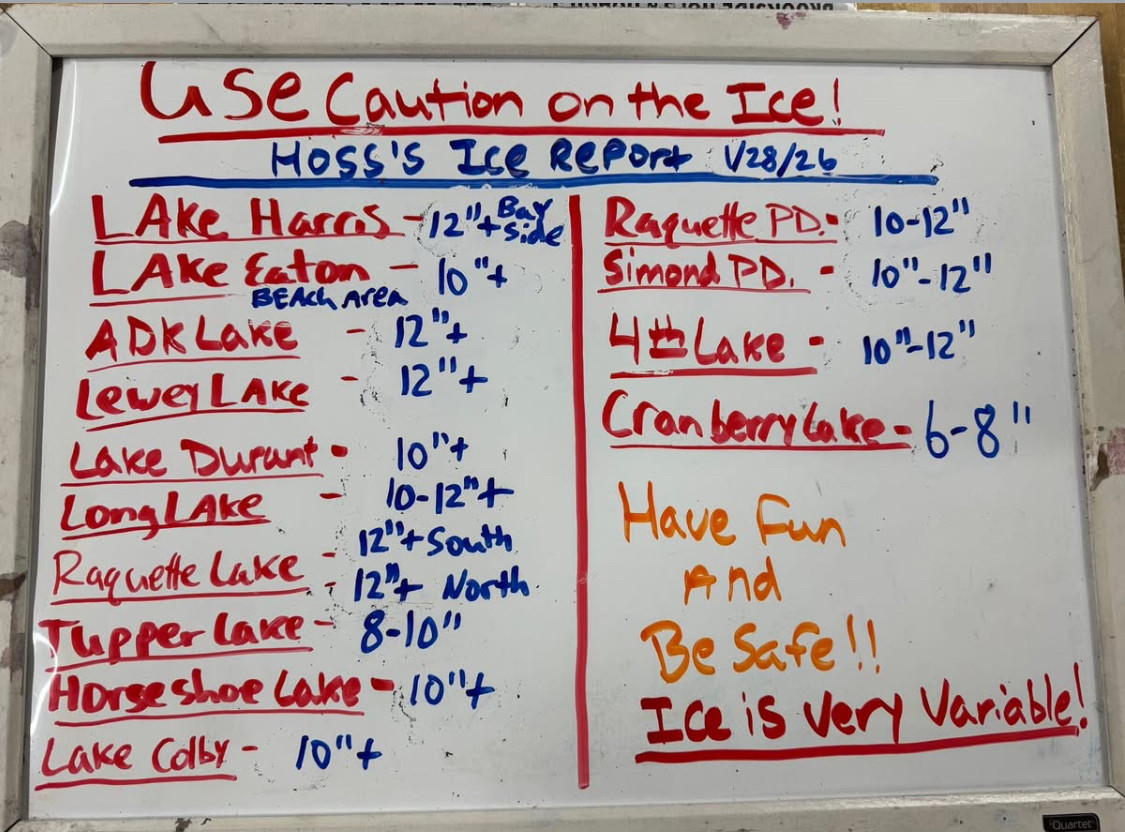 Use Caution on the Ice!
Hoss's Ice Report 1/28/26
LAke Harris - 12"+ Bay side
LAke Eaton - 10"+
BEAch Area
ADK Lake - 12"+
Lewey LAke - 12"+
Lake Durant - 10"+
Long LAke - 10-12"+
Raquette Lake - 12"+ South
- 12"+ North
Tupper Lake - 8-10"
Horseshoe Lake - 10"+
Lake Colby - 10"+
Raquette PD. - 10-12"
Simond PD. - 10"-12"
4th Lake - 10"-12"
Cranberry Lake - 6-8"
Have Fun
And
Be Safe!!
Ice is Very Variable!
Quartet